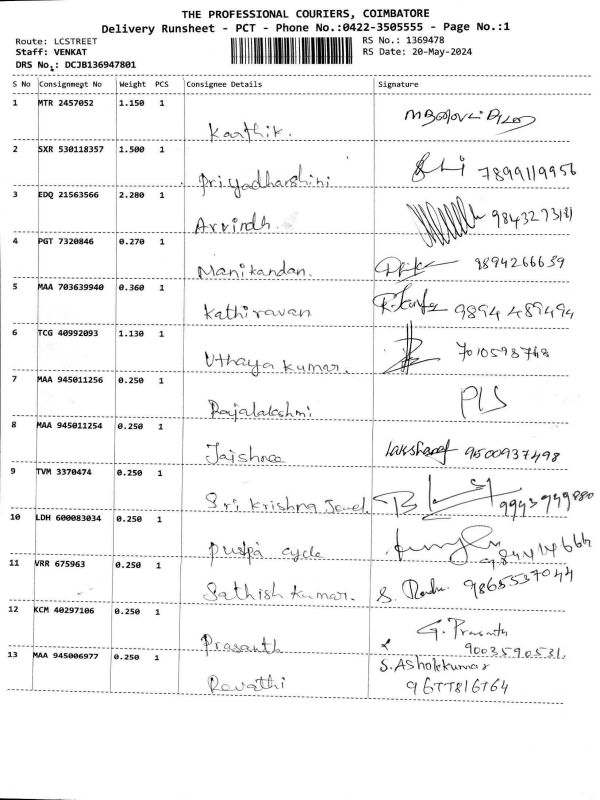 THE PROFESSIONAL COURIERS, COIMBATORE
Delivery Runsheet - PCT - Phone No.:0422-3505555 - Page No.:1
Route: LCSTREET RS No.: 1369478
Staff: VENKAT RS Date: 20-May-2024
DRS No.: DCJB136947801
S No Consignment No Weight PCS Consignee Details Signature
1 MTR 2457052 1.150 1
Karthik.
2 SXR 530118357 1.500 1
Priyadharshini 7899119956
3 EDQ 21563566 2.280 1
Arvindh. 9843273181
4 PGT 7320846 0.270 1
Manikandan. 9894266639
5 MAA 703639940 0.360 1
Kathiravan 9894489494
6 TCG 40992093 1.130 1
Uthaya kumar. 7010593768
7 MAA 945011256 0.250 1
Rajalakshmi
8 MAA 945011254 0.250 1
Jaishree 9500937498
9 TVM 3370474 0.250 1
Sri Krishna Jewel 9943949880
10 LDH 600083034 0.250 1
puspa cycle
11 VRR 675963 0.250 1
Sathish kumar. S. 9865537044
12 KCM 40297106 0.250 1
Prasanth G. Prasanth
9003590531.
13 MAA 945006977 0.250 1
S. Ashokkumar
Revathi 9677816764